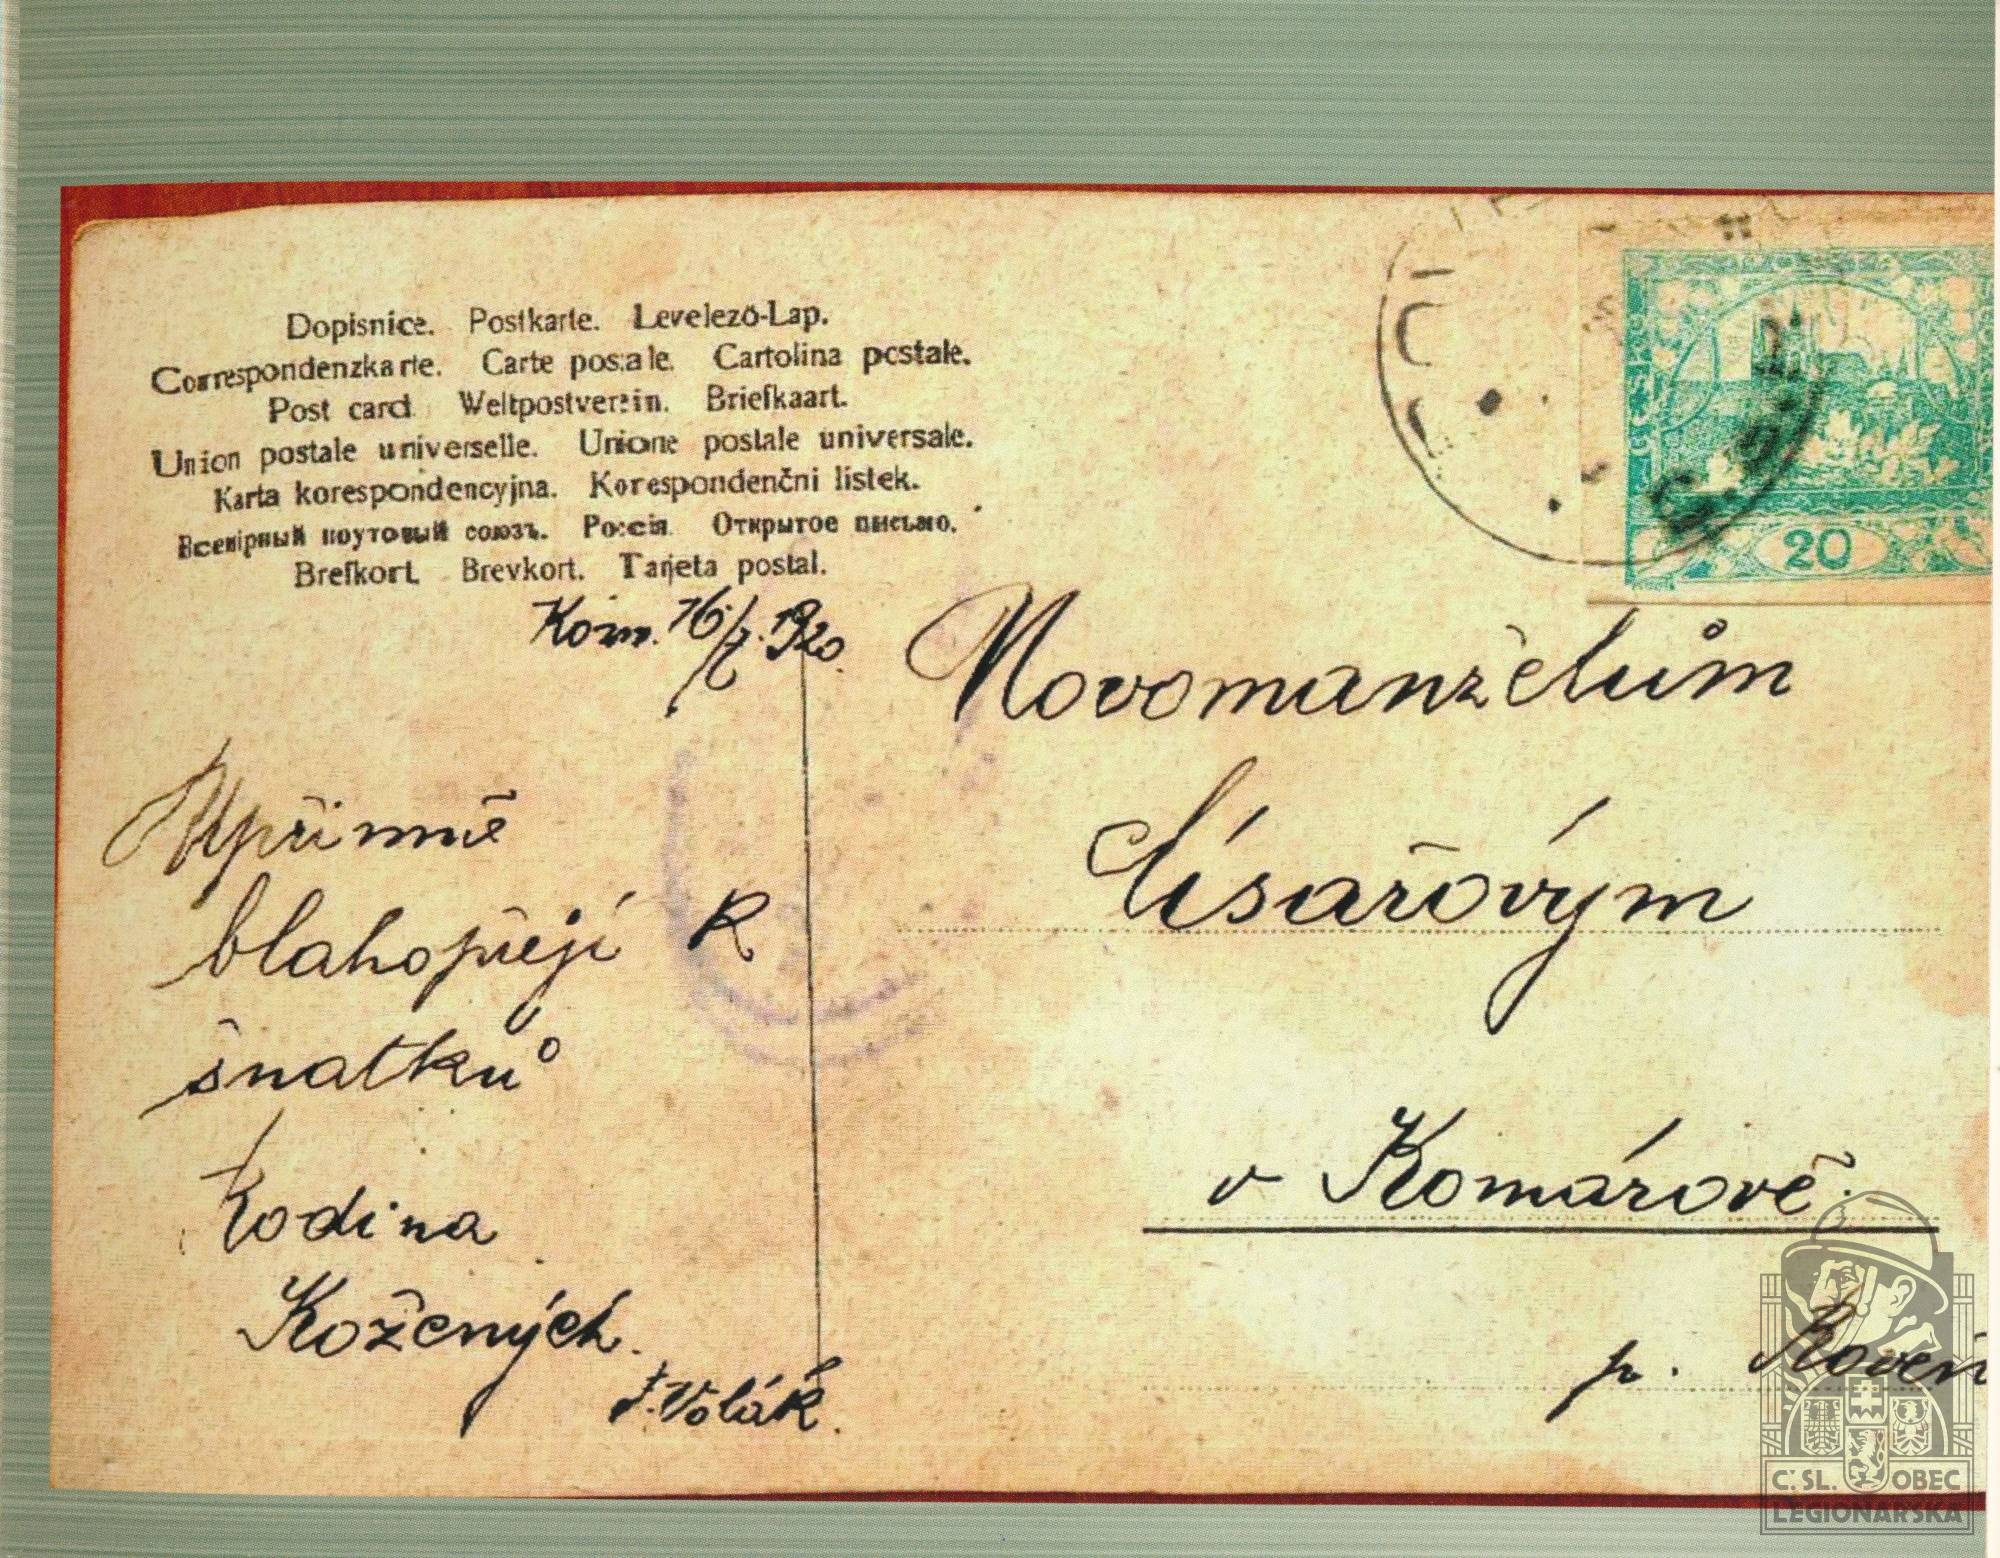 Dopisnice. Postkarte. Levelező-Lap.
Correspondenzkarte. Carte postale. Cartolina postale.
Post card. Weltpostverein. Briefkaart.
Union postale universelle. Unione postale universale.
Karta korespondencyjna. Korespondenční listek.
Всемірный почтовый союзъ. Россія. Открытое письмо.
Brefkort. Brevkort. Tarjeta postal.
20
Kom. 16/7. 1920.
Upřimně
blahopřejí k
šnatků
Rodina
Kožených.
F. Volák.
Novomanželům
Císařovým
v Komárově.
p. Roven
Č. SL. OBEC
LEGIONÁŘSKÁ